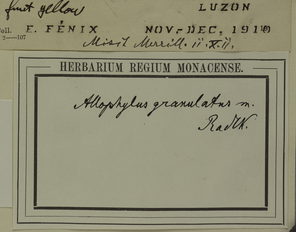 fruit yellow LUZON
Coll. E. FÉNIX NOV.-DEC. 1910
Misit Merrill. ii. X. 11.
HERBARIUM REGIUM MONACENSE.
Allophylus granulatus m.
Radlk.